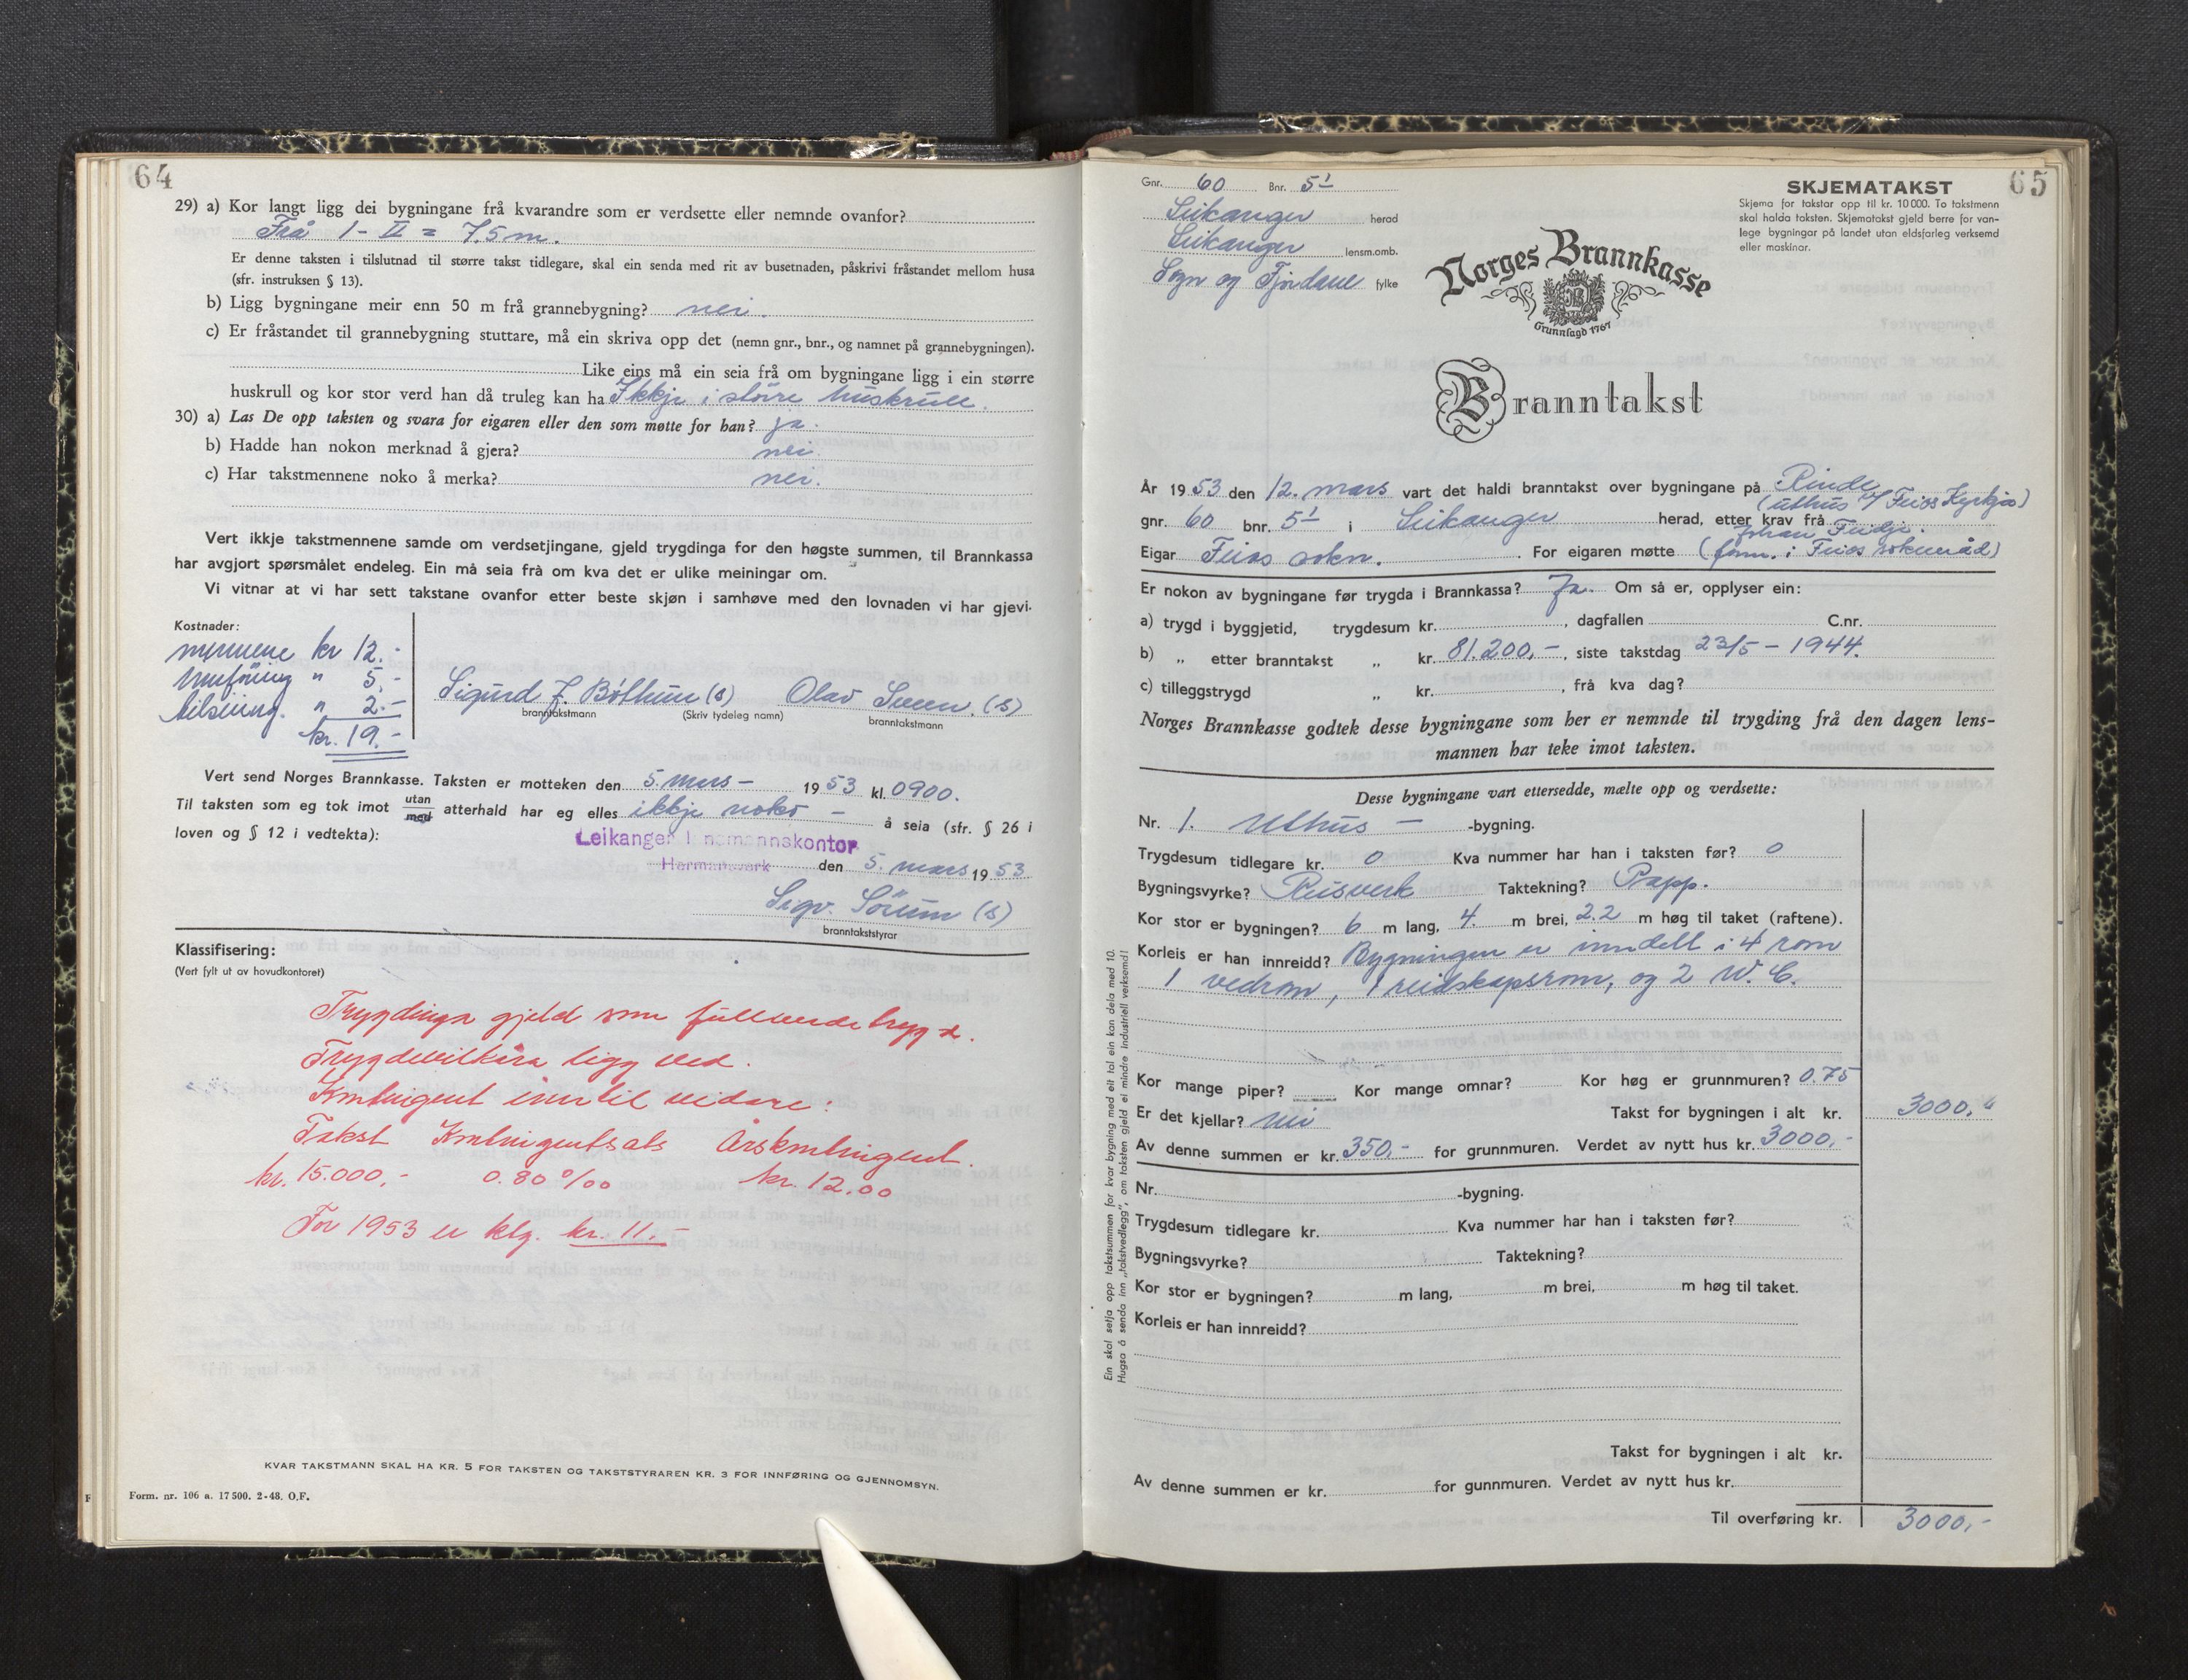 64
29) a) Kor langt ligg dei bygningane frå kvarandre som er verdsette eller nemnde ovanfor?
Frå I - II = 75 m.
Er denne taksten i tilslutnad til større takst tidlegare, skal ein senda med rit av busetnaden, påskrivi fråstandet mellom husa
(sfr. instruksen § 13).
b) Ligg bygningane meir enn 50 m frå grannebygning? nei.
c) Er fråstandet til grannebygning stuttare, må ein skriva opp det (nemn gnr., bnr., og namnet på grannebygningen).
Like eins må ein seia frå om bygningane ligg i ein større
huskrull og kor stor verd han då truleg kan ha Ikkje i större huskrull.
30) a) Las De opp taksten og svara for eigaren eller den som møtte for han? ja.
b) Hadde han nokon merknad å gjera? nei.
c) Har takstmennene noko å merka? nei.
Vert ikkje takstmennene samde om verdsetjingane, gjeld trygdinga for den høgste summen, til Brannkassa
har avgjort spørsmålet endeleg. Ein må seia frå om kva det er ulike meiningar om.
Vi vitnar at vi har sett takstane ovanfor etter beste skjøn i samhøve med den lovnaden vi har gjevi.
Kostnader:
mennene kr 12.-
Innföring " 5.-
tilsiing. " 2.-
kr. 19.-
Sigurd J. Böthun (s) Olav Sveen. (s)
branntakstmann (Skriv tydeleg namn) branntakstmann
Vert send Norges Brannkasse. Taksten er motteken den 5. mars - 1953 kl. 0900.
Til taksten som eg tok imot utan
med atterhald har eg elles ikkje noko - å seia (sfr. § 26 i
loven og § 12 i vedtekta):
Leikanger lensmannskontor
Hermansverk den 5. mars 1953
Sigv. Sörum (s)
branntakststyrar
Klassifisering:
(Vert fylt ut av hovudkontoret)
Trygdinga gjeld som fullverdetrygd.
Trygdevilkåra ligg ved.
Kontingent inntil vidare:
Takst Kontingentsats Årskontingent.
kr. 15.000,- 0.80 ‰ kr. 12.00
For 1953 er ktg. kr. 11.-
KVAR TAKSTMANN SKAL HA KR. 5 FOR TAKSTEN OG TAKSTSTYRAREN KR. 3 FOR INNFØRING OG GJENNOMSYN.
Form. nr. 106 a. 17 500. 2-48. O.F.
65
Gnr. 60 Bnr. 51
Leikanger herad
Leikanger lensm.omb.
Sogn og Fjordane fylke
SKJEMATAKST
Skjema for takstar opp til kr. 10 000. To takstmenn
skal halda taksten. Skjematakst gjeld berre for van-
lege bygningar på landet utan eldsfarleg verksemd
eller maskinar.
Norges Brannkasse
Grunnlagd 1767
Branntakst
År 1953 den 12. mars vart det haldi branntakst over bygningane på Rinde
(uthus v/ Feios Kyrkja)
gnr. 60 bnr. 51 i Leikanger herad, etter krav frå
Johan Feidje.
Eigar Feios sokn. For eigaren møtte (form. i Feios sokneråd)
Er nokon av bygningane før trygda i Brannkassa? Ja. Om så er, opplyser ein:
a) trygd i byggjetid, trygdesum kr. , dagfallen C.nr.
b) „ etter branntakst „ kr. 81.200,-, siste takstdag 23/5 - 1944.
c) tilleggstrygd „ kr. , frå kva dag?
Norges Brannkasse godtek desse bygningane som her er nemnde til trygding frå den dagen lens-
mannen har teke imot taksten.
Desse bygningane vart ettersedde, mælte opp og verdsette:
Nr. 1. Uthus - -bygning.
Trygdesum tidlegare kr. 0 Kva nummer har han i taksten før? 0
Bygningsvyrke? Reisverk Taktekning? Papp.
Kor stor er bygningen? 6 m lang, 4. m brei, 2.2 m høg til taket (raftene).
Korleis er han innreidd? Bygningen er inndelt i 4 rom
1 vedrom, 1 reidskapsrom, og 2 W.C.
Kor mange piper? Kor mange omnar? Kor høg er grunnmuren? 0.75
Er det kjellar? nei Takst for bygningen i alt kr. 3000,-
Av denne summen er kr. 350,- for grunnmuren. Verdet av nytt hus kr. 3000,-
Nr. -bygning.
Trygdesum tidlegare kr. Kva nummer har han i taksten før?
Bygningsvyrke? Taktekning?
Kor stor er bygningen? m lang, m brei, m høg til taket.
Korleis er han innreidd?
Takst for bygningen i alt kr.
Av denne summen er kr. for gunnmuren. Verdet av nytt hus kr.
Til overføring kr. 3000,-
Ein skal setja opp takstsummen for kvar bygning med eit tal ein kan dela med 10.
Hugsa å senda inn „takstvedlegg", om taksten gjeld ei mindre industriell verksemd!